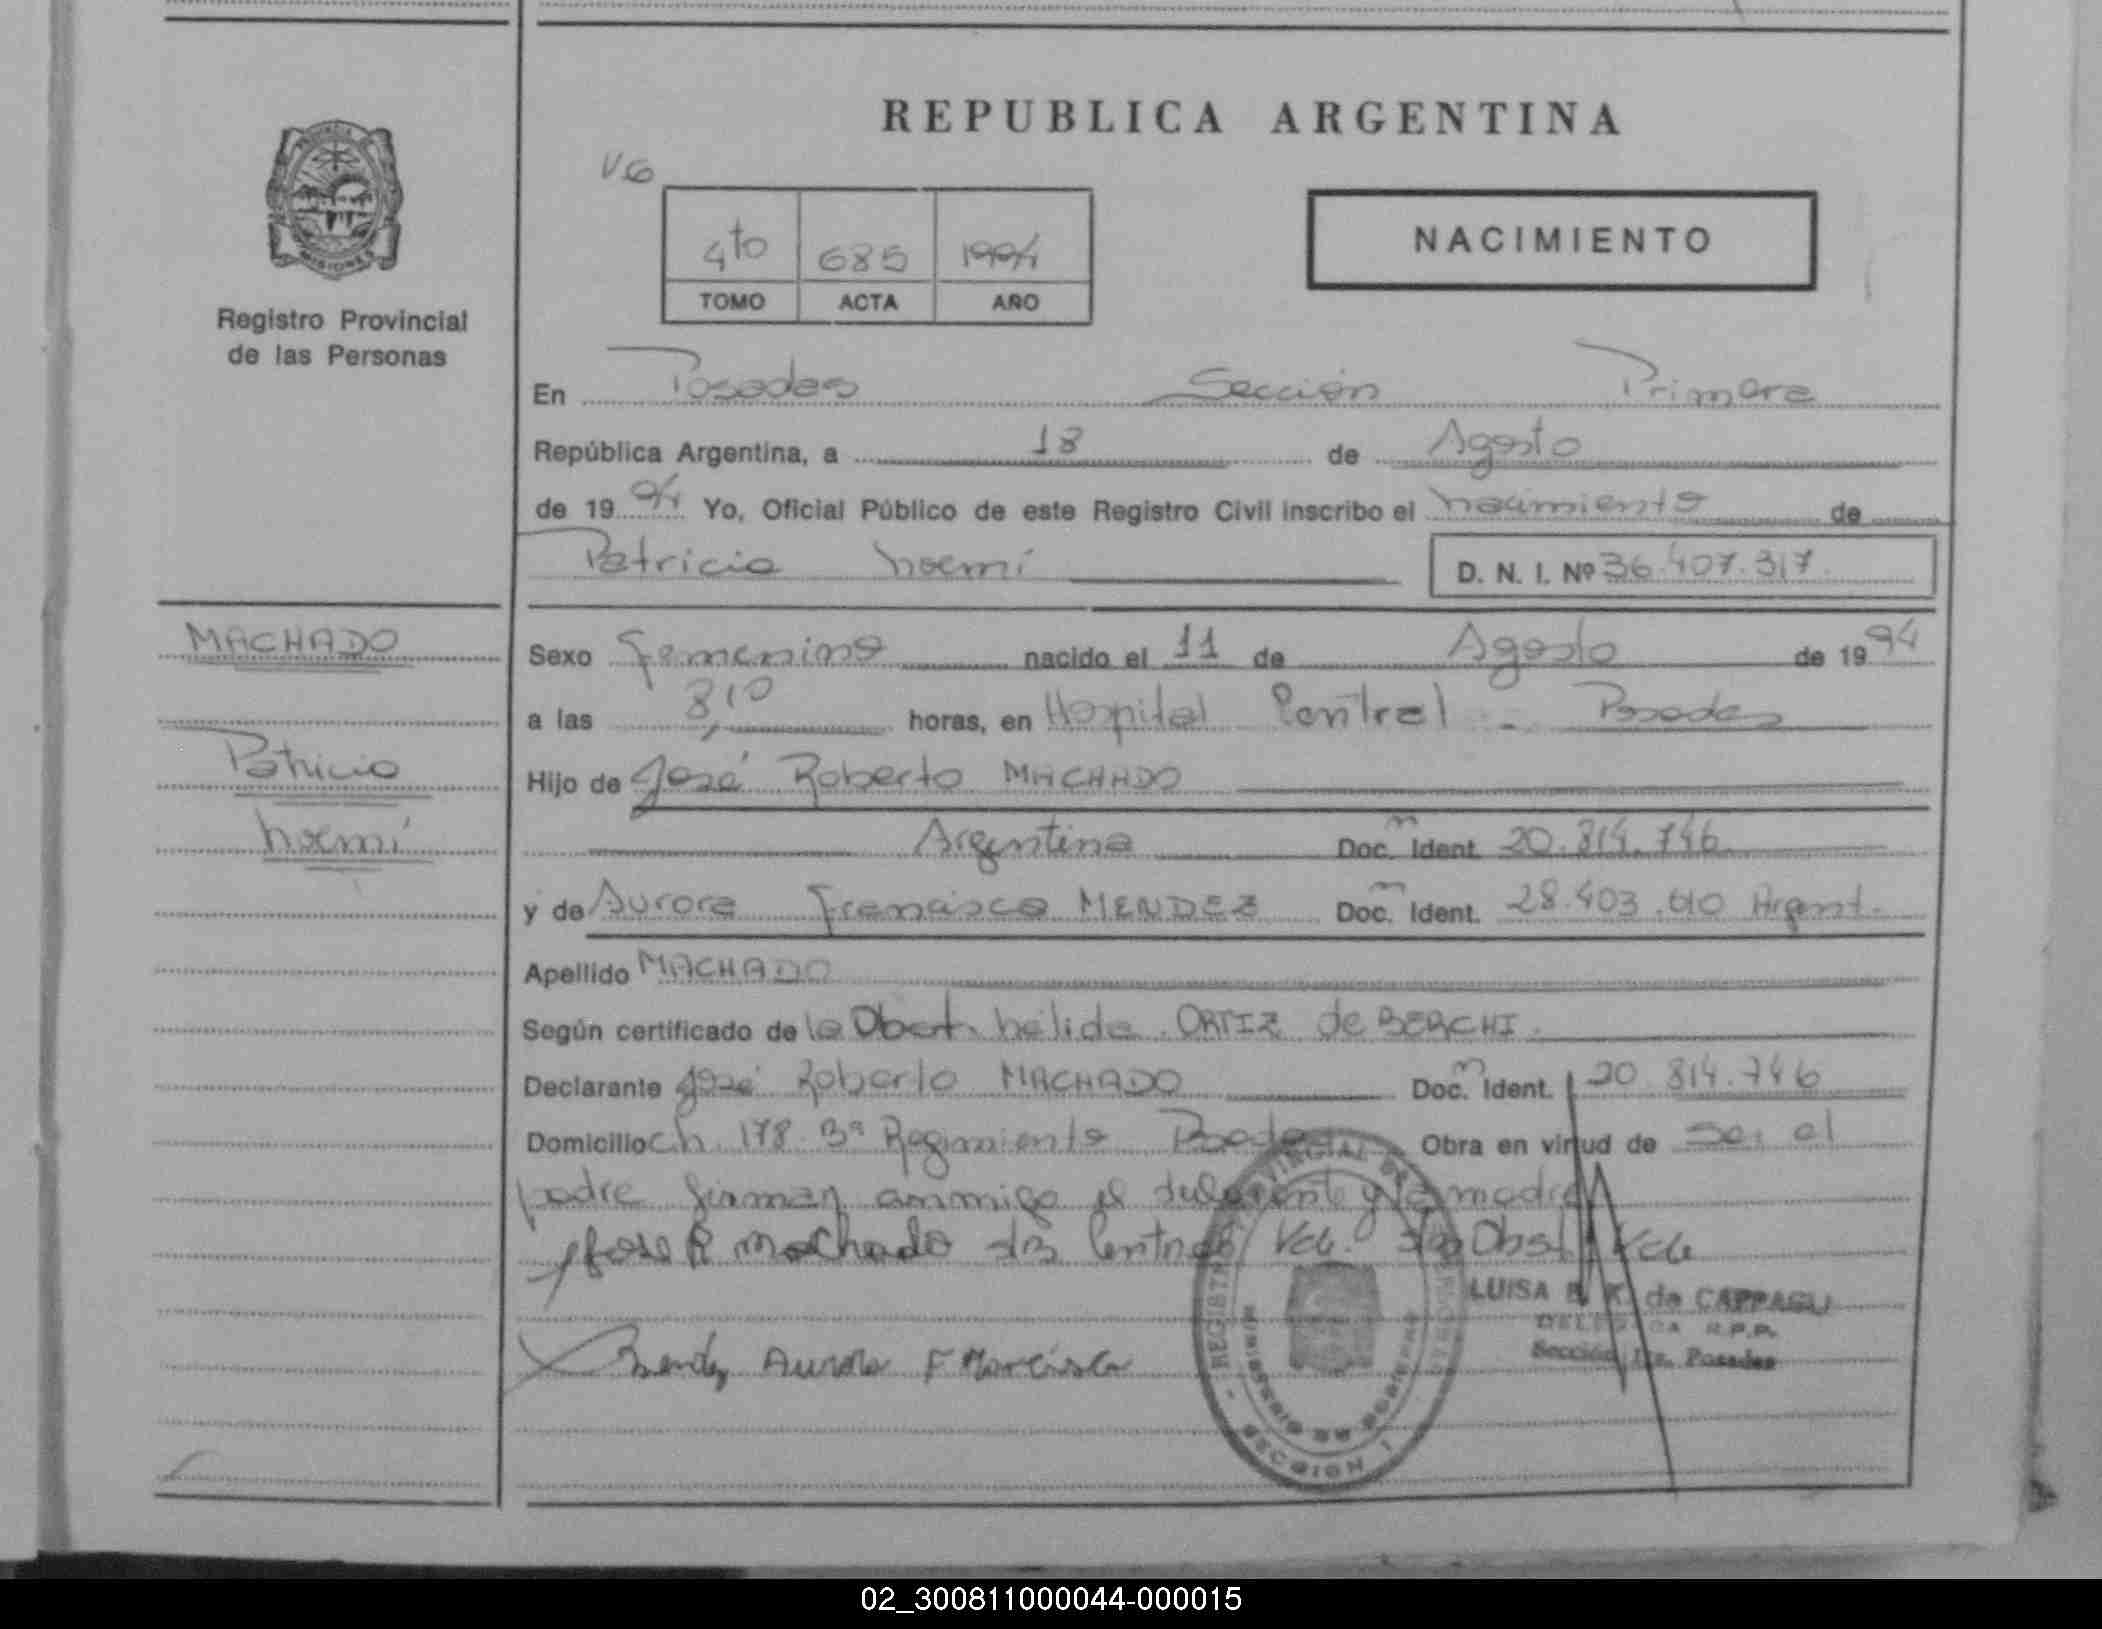 REPUBLICA ARGENTINA
VG
4to 685 1994
TOMO ACTA AÑO
NACIMIENTO
MISIONES
Registro Provincial
de las Personas
En Posadas Sección Primera
República Argentina, a 18 de Agosto
de 1994 Yo, Oficial Público de este Registro Civil inscribo el nacimiento de
Patricia noemí D. N. I. Nº 36.407.317
MACHADO
Patricia
noemí
Sexo Femenino nacido el 11 de Agosto de 1994
a las 8,10 horas, en Hospital Central - Posadas
Hijo de José Roberto MACHADO
Argentina Doc. Ident. 20.814.746
y de Aurora Francisca MENDEZ Doc. Ident. 28.403.010 Argent.
Apellido MACHADO
Según certificado de la Obst. nélida ORTIZ de BERCHI.
Declarante José Roberto MACHADO Doc. Ident. 20.814.746
Domicilio Ch. 178. 3ª Regimiento Posadas Obra en virtud de ser el
padre firman conmigo el declarante y la madre
Jose R machado Vale. Obst. Vale
LUISA de CAPPAGLI
DELEGADA R.P.P.
Sección 1ra. Posadas
Mendez Aurora F
REGISTRO PROVINCIAL DE
MINISTERIO DE GOBIERNO
SECCION 1
02_300811000044-000015